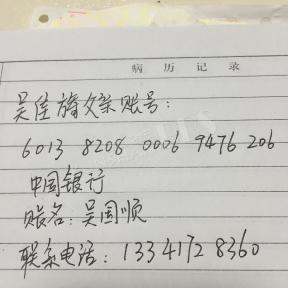 病历记录
吴佳旖父亲账号：
6013 8208 0006 9476 206
中国银行
账名：吴国顺
联系电话：13341728360